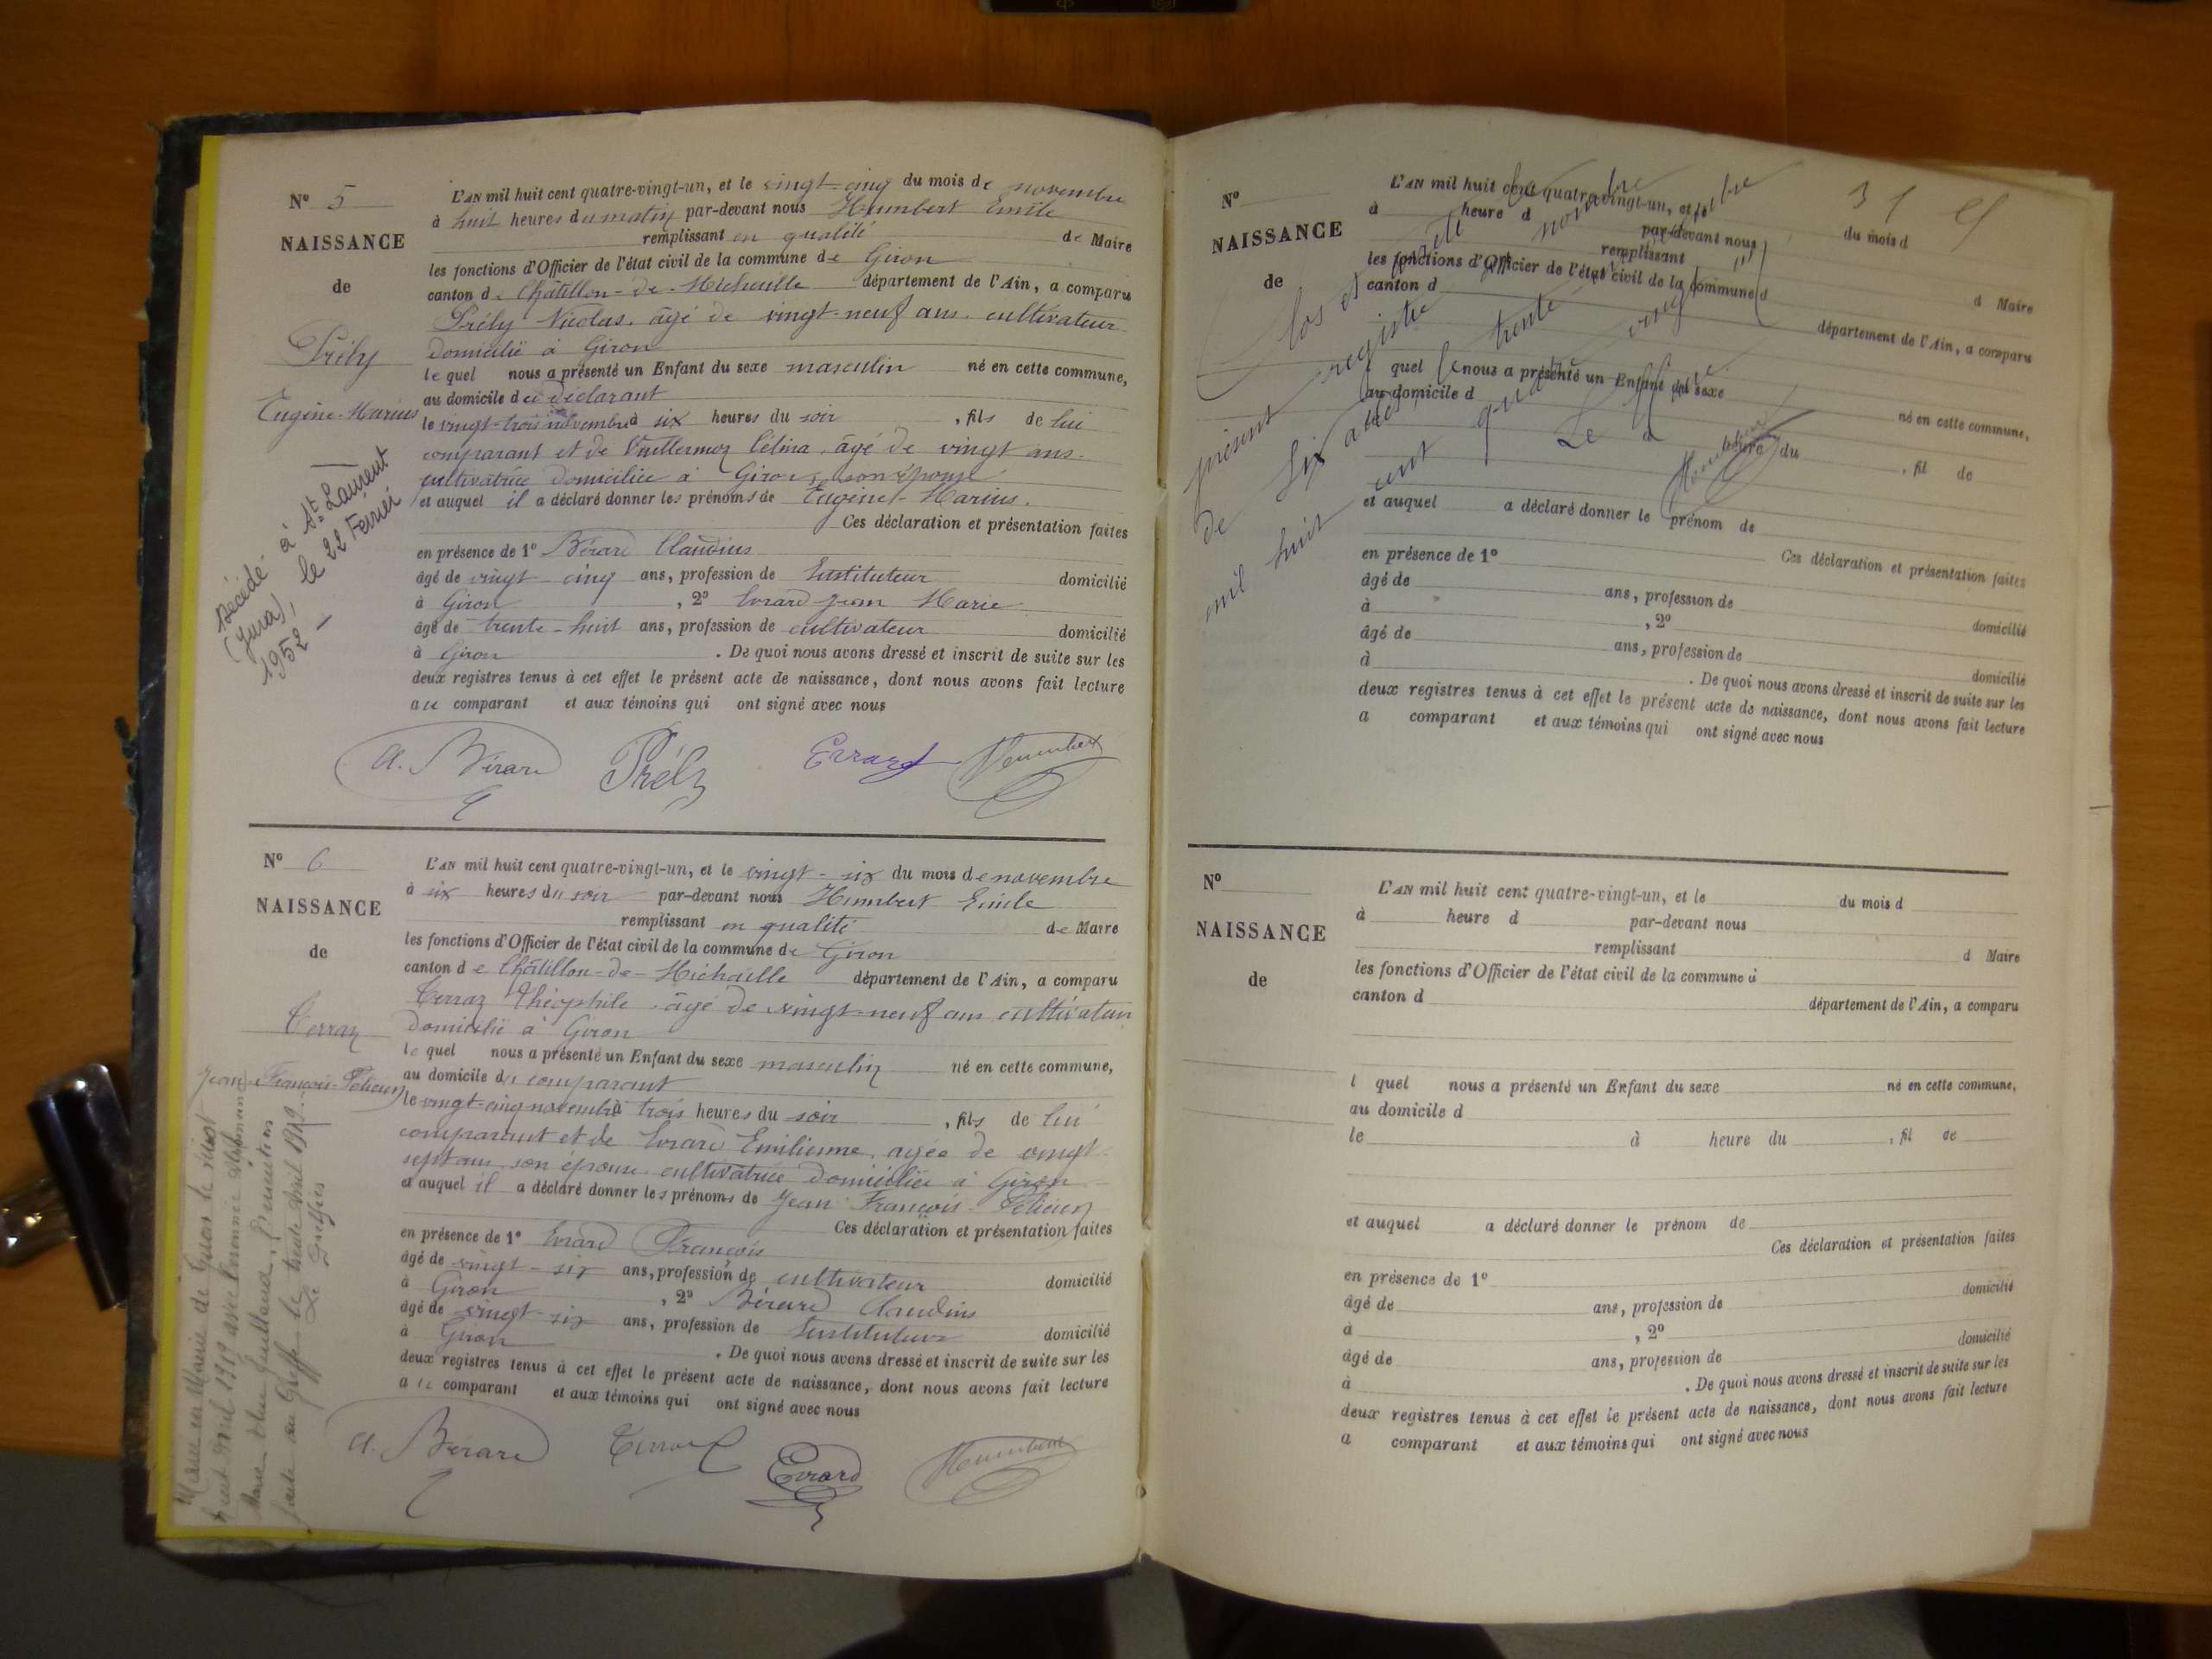 N° 5
NAISSANCE
de
Prély
Eugène-Marius
Décédé à St. Laurent
(Jura), le 22 Février
1952 —
L'AN mil huit cent quatre-vingt-un, et le vingt-cinq du mois de novembre
à huit heures du matin par-devant nous Humbert Emile
remplissant en qualité de Maire
les fonctions d'Officier de l'état civil de la commune de Giron
canton de Châtillon-de-Michaille département de l'Ain, a comparu
Prély Nicolas, âgé de vingt-neuf ans, cultivateur
domicilié à Giron
le quel nous a présenté un Enfant du sexe masculin né en cette commune,
au domicile du déclarant
le vingt-trois novembre à six heures du soir, fils de lui
comparant et de Vuillermoz Célina, âgé de vingt ans.
cultivatrice domiciliée à Giron, son épouse
et auquel il a déclaré donner les prénoms de Eugène-Marius.
Ces déclaration et présentation faites
en présence de 1° Bérard Claudius
âgé de vingt-cinq ans, profession de Instituteur domicilié
à Giron, 2° Evrard Jean Marie
âgé de trente-huit ans, profession de cultivateur domicilié
à Giron. De quoi nous avons dressé et inscrit de suite sur les
deux registres tenus à cet effet le présent acte de naissance, dont nous avons fait lecture
au comparant et aux témoins qui ont signé avec nous
Bérard Prély Evrard Humbert
N° 6
NAISSANCE
de
Terraz
Jean-François-Félicien
L'AN mil huit cent quatre-vingt-un, et le vingt-six du mois de novembre
à six heures du soir par-devant nous Humbert Emile
remplissant en qualité de Maire
les fonctions d'Officier de l'état civil de la commune de Giron
canton de Châtillon-de-Michaille département de l'Ain, a comparu
Terraz Théophile, âgé de vingt-neuf ans cultivateur
domicilié à Giron
le quel nous a présenté un Enfant du sexe masculin né en cette commune,
au domicile du comparant
le vingt-cinq novembre à trois heures du soir, fils de lui
comparant et de Evrard Emilienne, agée de vingt-
sept ans, son épouse, cultivatrice domiciliée à Giron
et auquel il a déclaré donner les prénoms de Jean François-Félicien
Ces déclaration et présentation faites
en présence de 1° Evrard François
âgé de vingt-six ans, profession de cultivateur domicilié
à Giron, 2° Bérard Claudius
âgé de vingt-six ans, profession de Instituteur domicilié
à Giron. De quoi nous avons dressé et inscrit de suite sur les
deux registres tenus à cet effet le présent acte de naissance, dont nous avons fait lecture
au comparant et aux témoins qui ont signé avec nous
Bérard Terraz Evrard Humbert
Marié en Mairie de Giron le
avril 1919 avec
Marie
faite au Greffe le trente Avril 1919
Le Greffier
N°
NAISSANCE
de
L'AN mil huit cent quatre-vingt-un, et le du mois d
à heure d par-devant nous
remplissant d Maire
les fonctions d'Officier de l'état civil de la commune d
canton d département de l'Ain, a comparu
l quel nous a présenté un Enfant du sexe né en cette commune,
au domicile d
le à heure du, fil de
et auquel a déclaré donner le prénom de
Ces déclaration et présentation faites
en présence de 1°
âgé de ans, profession de domicilié
à, 2°
âgé de ans, profession de domicilié
à. De quoi nous avons dressé et inscrit de suite sur les
deux registres tenus à cet effet le présent acte de naissance, dont nous avons fait lecture
a comparant et aux témoins qui ont signé avec nous
Clos et arrêté le
présent registre
de six actes, trente
mil huit cent quatre vingt
Le Maire
Humbert
N°
NAISSANCE
de
L'AN mil huit cent quatre-vingt-un, et le du mois d
à heure d par-devant nous
remplissant d Maire
les fonctions d'Officier de l'état civil de la commune d
canton d département de l'Ain, a comparu
l quel nous a présenté un Enfant du sexe né en cette commune,
au domicile d
le à heure du, fil de
et auquel a déclaré donner le prénom de
Ces déclaration et présentation faites
en présence de 1° domicilié
âgé de ans, profession de
à, 2° domicilié
âgé de ans, profession de
à. De quoi nous avons dressé et inscrit de suite sur les
deux registres tenus à cet effet le présent acte de naissance, dont nous avons fait lecture
a comparant et aux témoins qui ont signé avec nous